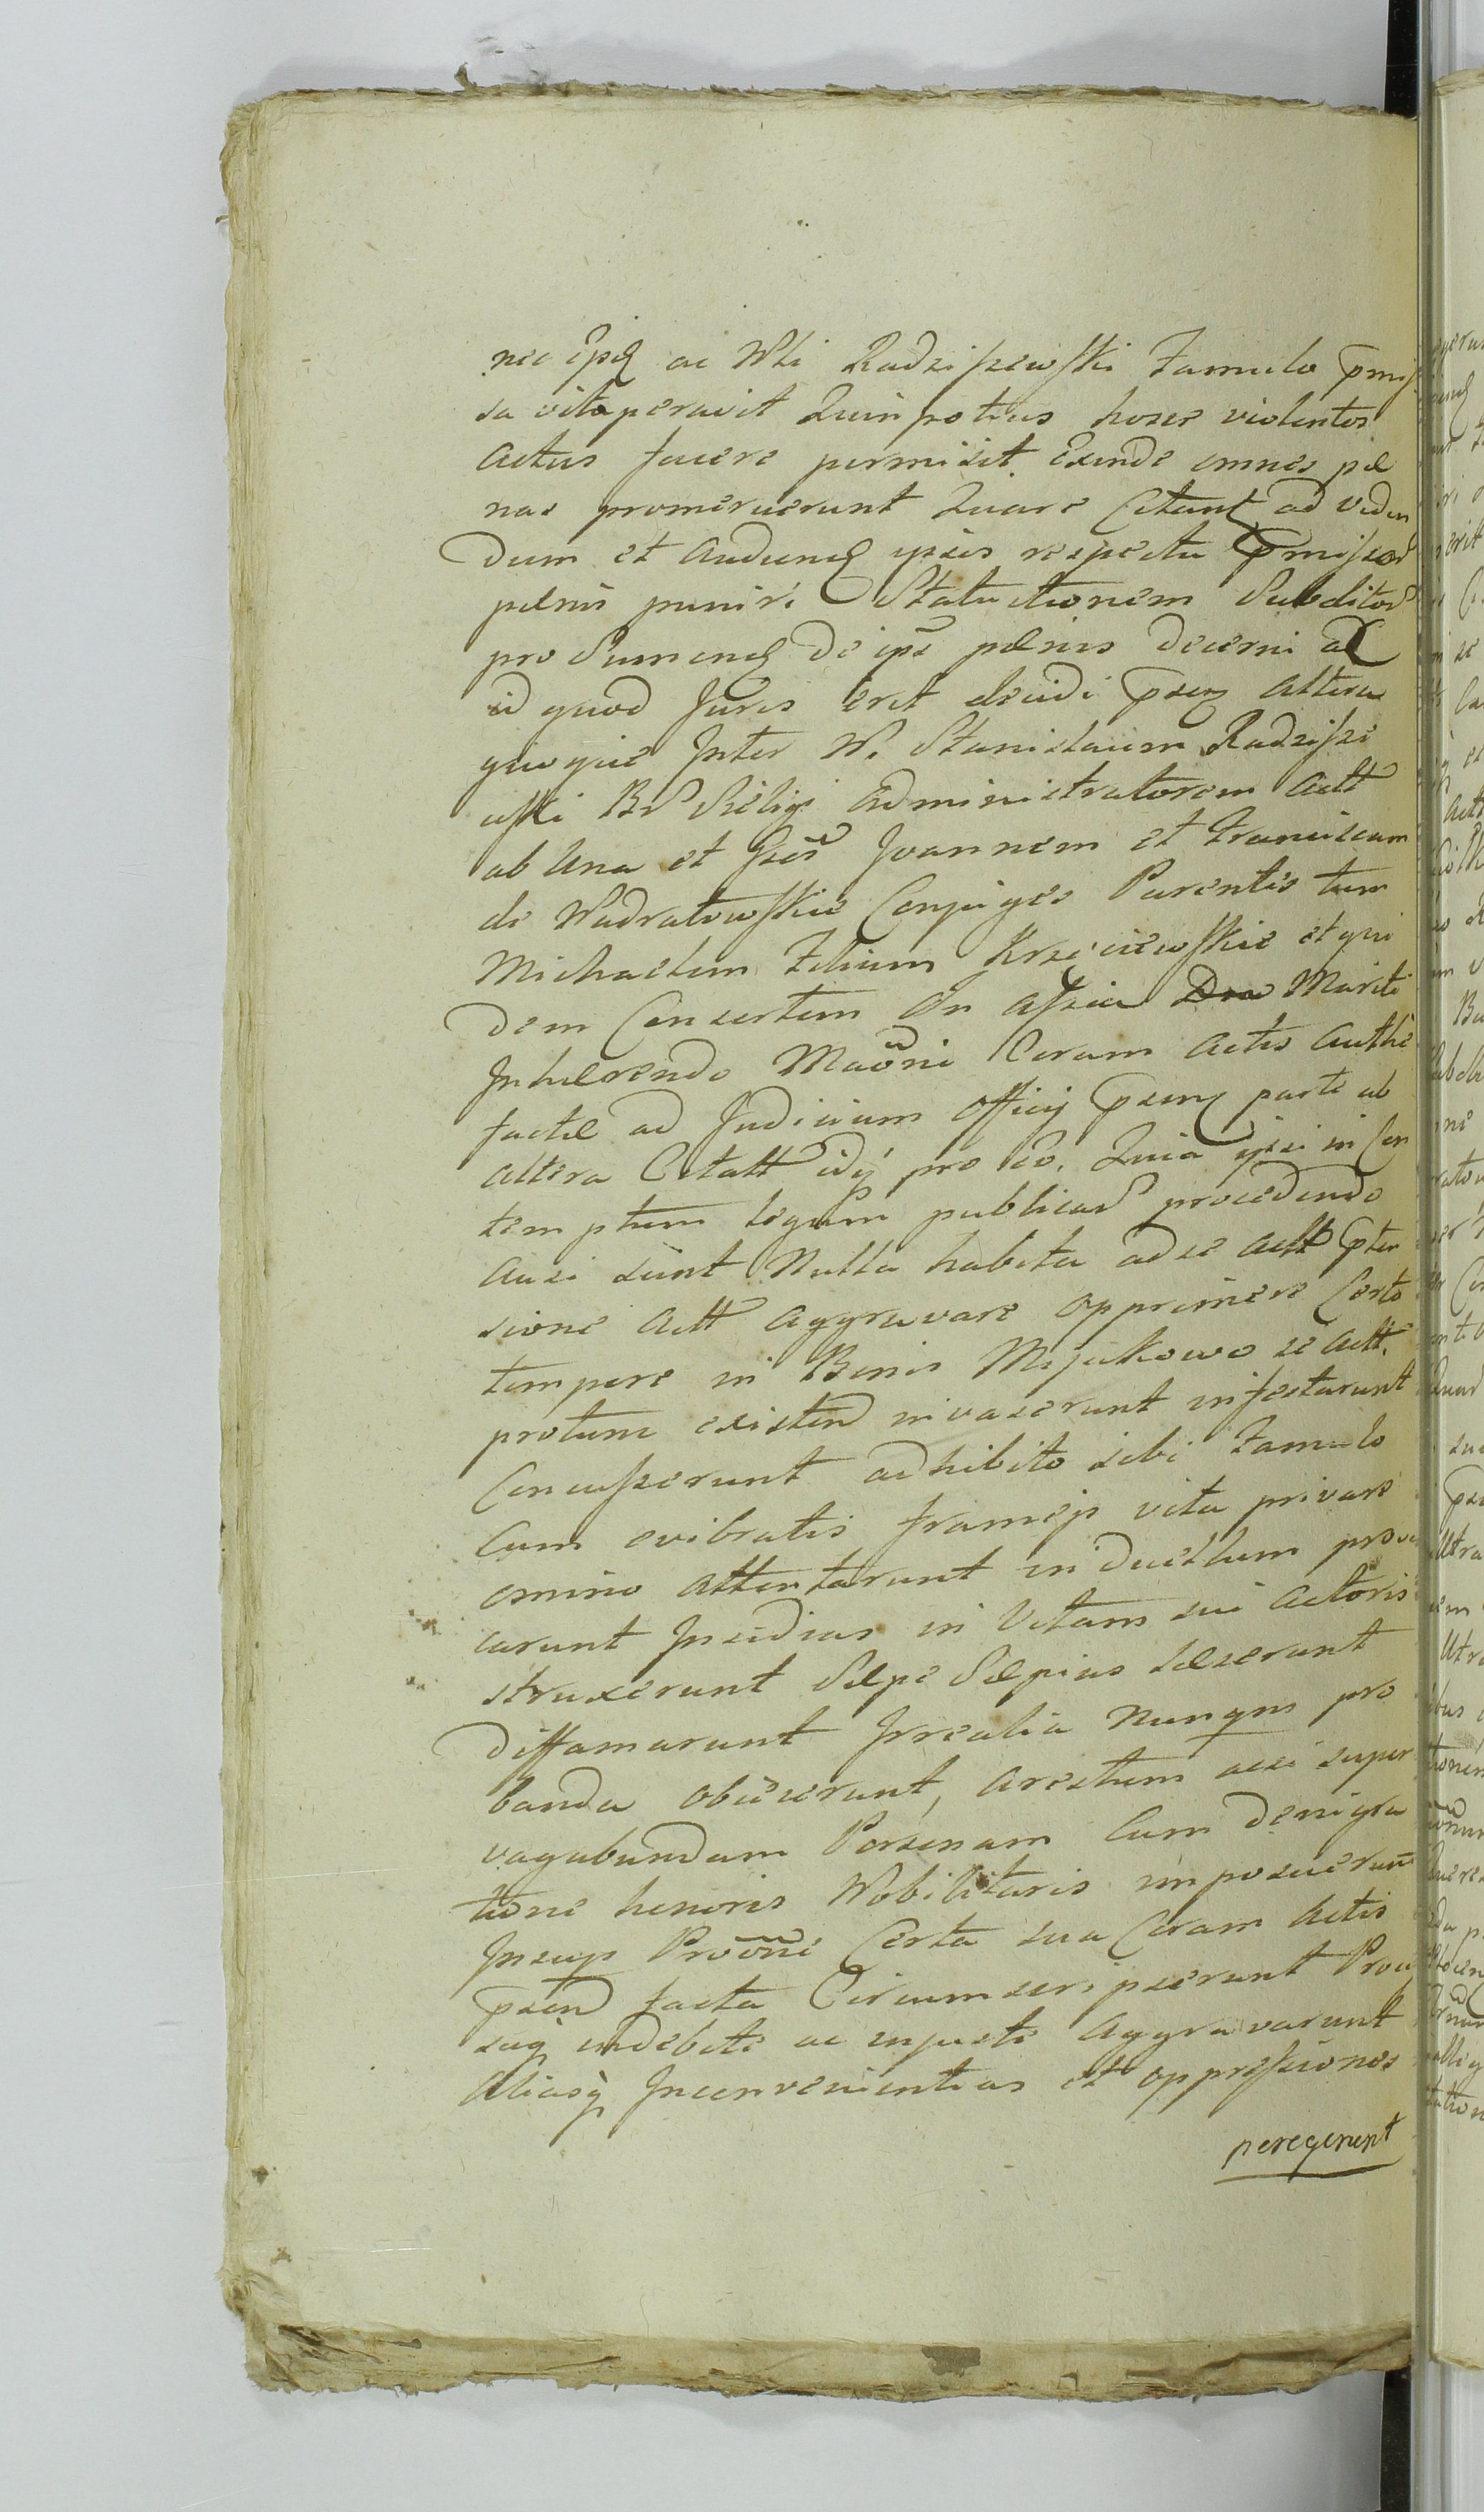 nec ipsq ac Wli Radziszewski Famulo pmis
sa vituperavit Quinpotius hosce violentos
actus facere permisit Exinde omnes pæ
nas promeruerunt Quare Citant ad viden
dum et audiend ipsis respectu pmissor
pænis puniri Statuitionem Subditor
pro Sumend de ips pænis decerni ad
id quod Juris erit decidi psenq altera
quoque Inter W. Stanislaum Radzisze
wski Br Sielig administratorem actt
ab Una et Gsos Joannem et Franciscam
de Wadratowskie Conjuges Parentes tum
Michaelem Filium Krzéciewskie et qui
dem Consortem in assia Mariti
Inhærendo Maōni Coram actis authē
factæ ad Judicium officij psenq parte ab
altera Citatt idq pro eo. Quia ipsi in Con
temptum legum publicar procedendo
ausi sunt Nulla habita ad se actt pten
sione actt aggravare opprimere Certo
tempore in Bonis Mijakowo se actt.
protunc existen invaserunt infestarunt
Concusserunt adhibito sibi Famulo
Cum evibratis frameis vita privare
omnino attentarunt in duellum provo
carunt Insidias in Vitam sui actoris
struxerunt Sæpe Sæpius læserunt
diffamarunt Irrealia Nunqm pro
banda obiecerunt, arestum acsi super
vagabundam Personam Cum denigra
tione honoris Nobilitaris imposuerunt
Insup Proōni Certa sua Coram actis
psen facta Circumscripserunt Prou
suq indebite ac injuste aggravarunt
aliasq Inconvenientias et oppressiones
peregerunt